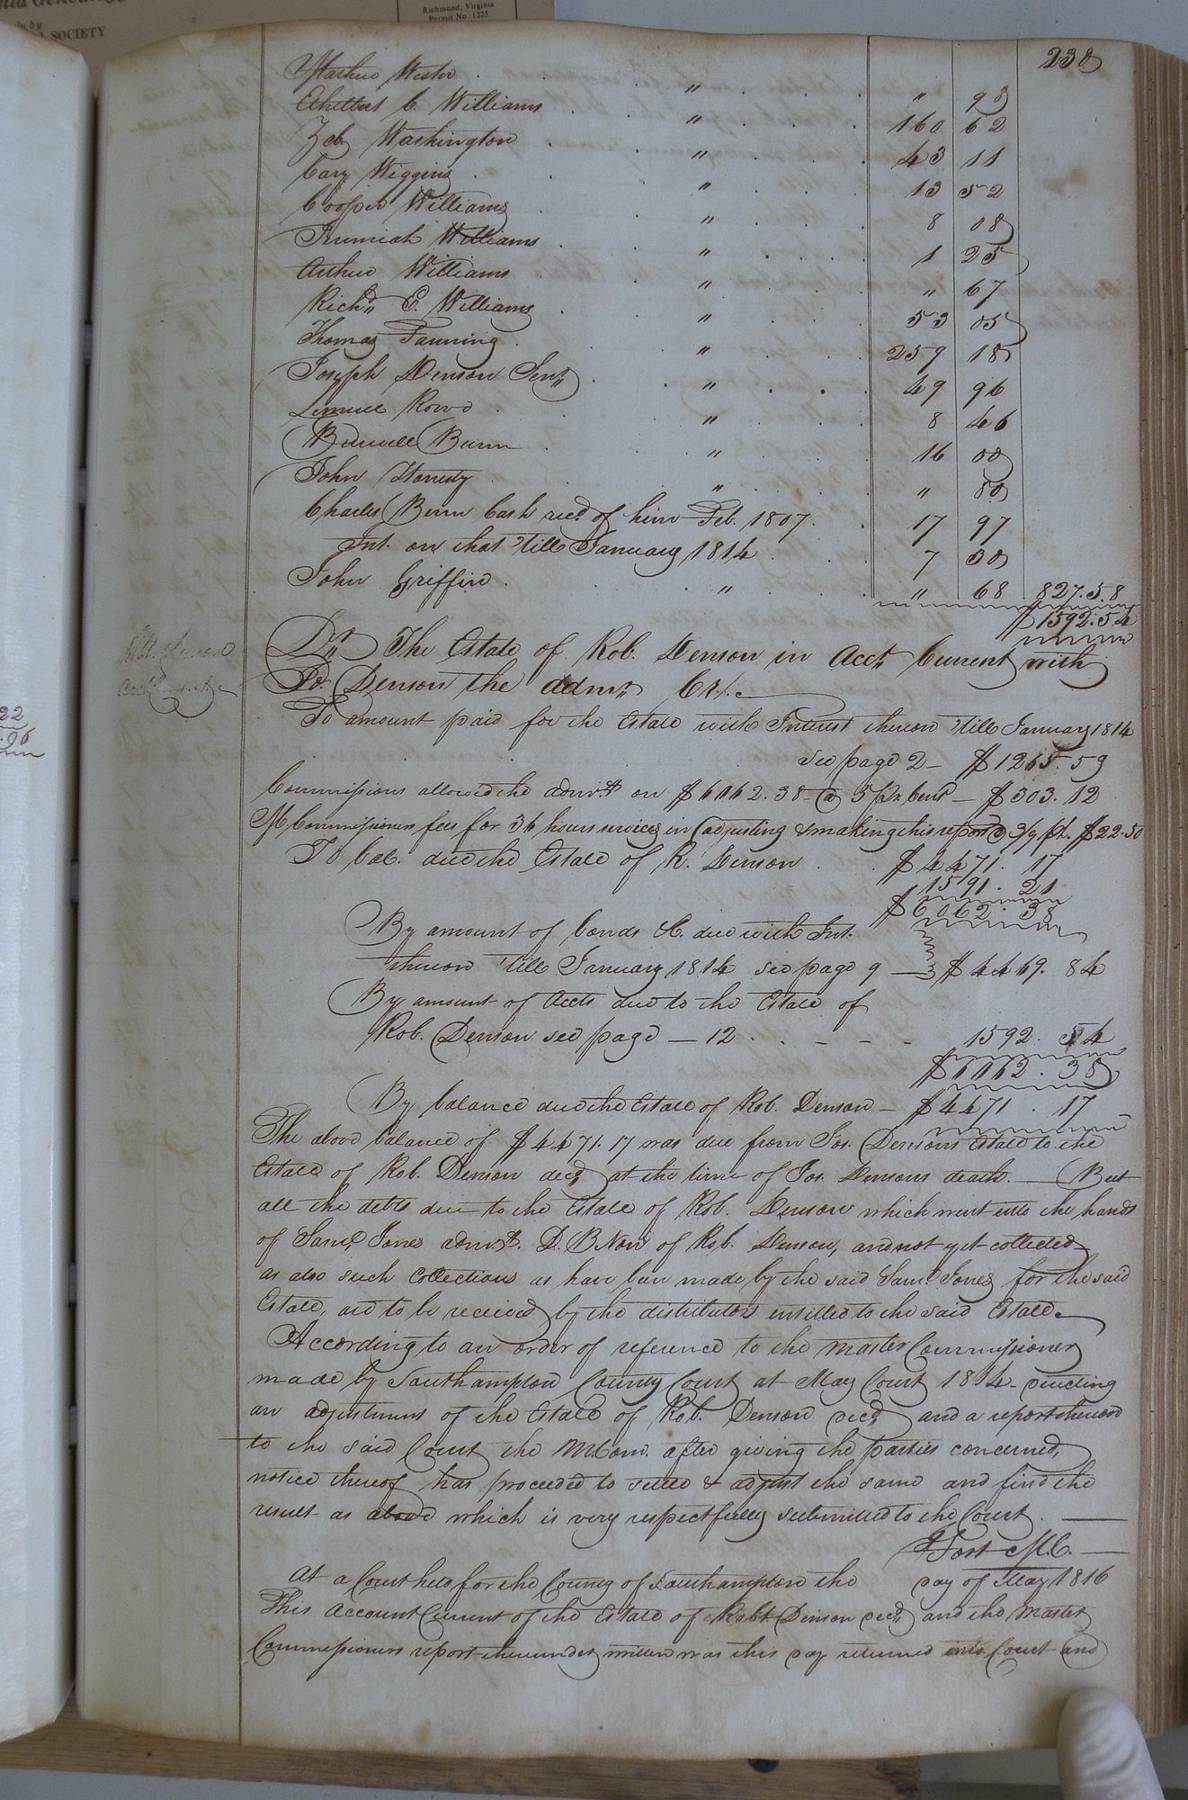 Richmond, Virginia
Permit No. 1225
SOCIETY
238
Wester . " . . " 93
C. Williams . " . . 160 62
Zeb Washington . " . . 43 11
Cary Wiggins . " . . 13 52
Cooper Williams . " . . 8 08
Jeremiah Williams . " . . 1 25
Arthur Williams . " . . " 67
Richd. E. Williams . " . . 53 05
Thomas Fanning . " . . 259 18
Joseph Denson Senr. . " . . 49 96
Lemuel Rowe . " . . 8 46
Burwell Bunn . " . . 16 00
John " . . " 80
Charles Binn Cash recd. of him Feb. 1807 . 17 97
Int. on that 'till January 1814 . 7 30
John Griffin . " . " 68 827.58
$1592.54
Dr. The Estate of Rob. Denson in Acct. Current with
Jo. Denson the admr. Cr.
To amount paid for the Estate with Interest thereon 'till January 1814
see page 2 - $1265.59
Commissions allowed the admr. on $6062.38 @ 5 pr. Cent - $303.12
M Commissioners fees for 36 hours services in adjusting & making this report @ 3/9 pr. $22.50
To bal. due the Estate of R. Denson . . $4471. 17
1591. 21
$6062. 38
By amount of bonds &c. due with Int.
thereon 'till January 1814 see page 9 - $4469. 84
By amount of Accts due to the Estate of
Rob. Denson see page - 12 . . - - - 1592. 54
$6062. 38
By balance due the Estate of Rob. Denson - $4471. 17
The above balance of $4471.17 was due from Jos. Densons Estate to the
Estate of Rob. Denson decd. at the time of Jos. Densons death. - But
all the debts due to the Estate of Rob. Denson which went into the hands
of Saml. Jones admr. D. B Non of Rob. Denson, and not yet collected
as also such collections as have been made by the said Saml. Jones for the said
Estate, are to be received by the distributors entitled to the said Estate.
According to an order of reference to the Master Commissioner
made by Southampton County Court at May Court 1814 - directing
an adjustment of the Estate of Rob. Denson decd. and a report thereon
to the said Court the M Com. after giving the parties concerned,
notice thereof has proceeded to settle & adjust the same and find the
result as above which is very respectfully submitted to the Court. -
Fort M.C. -
At a Court held for the County of Southampton the day of May 1816
This Account Current of the Estate of Robt. Denson decd. and the Master
Commissioners report thereunder written was this day returned into Court and